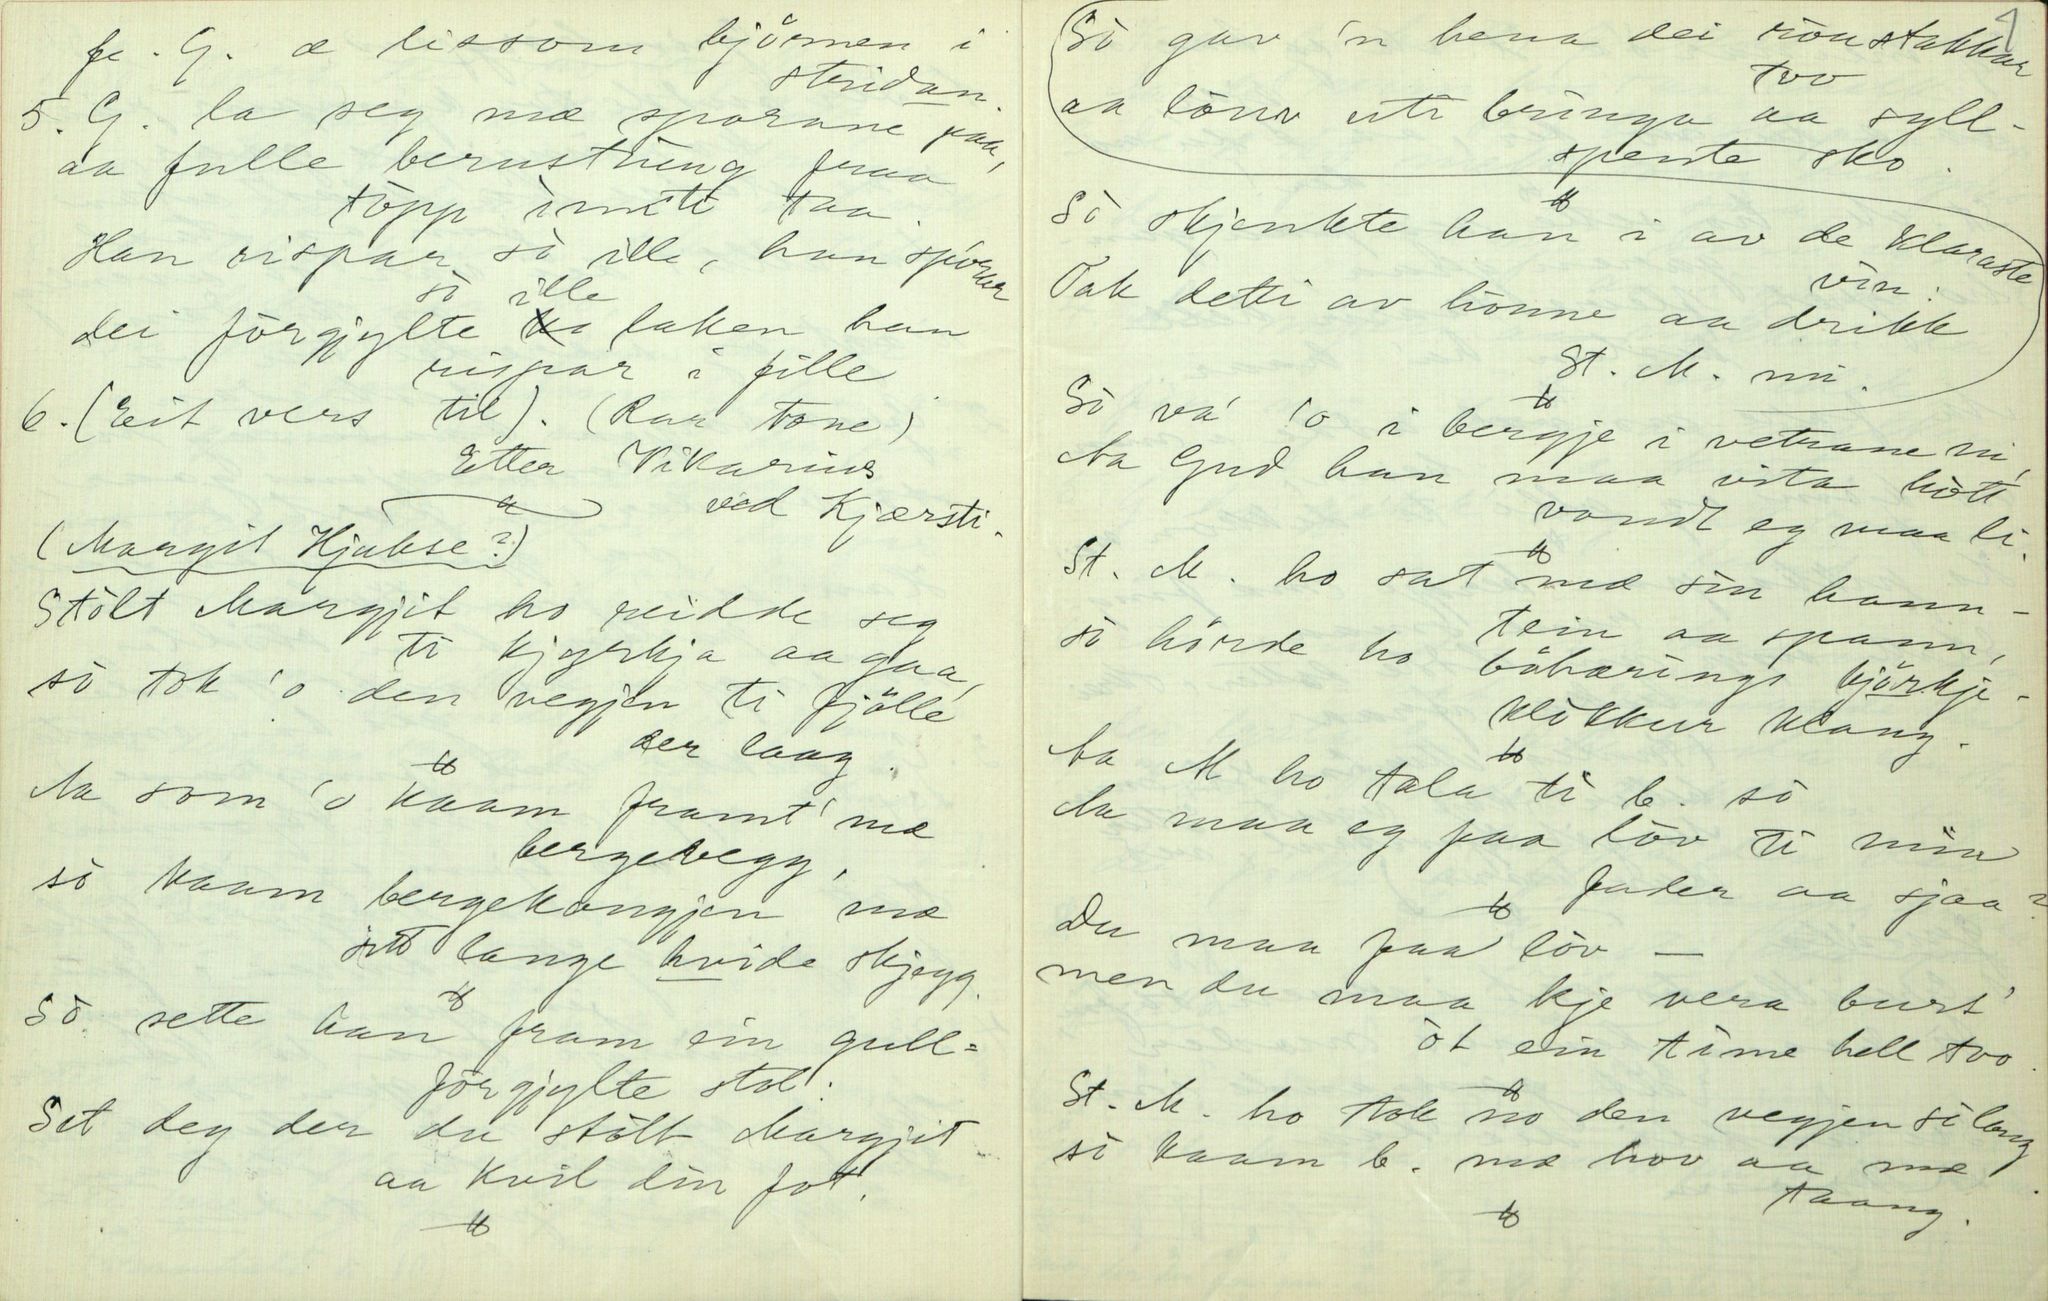 fe. G. æ lissom björnen i
stridan.
5. G. la seg mæ sporane paa,
aa fulle berustning fraa
töpp imiti taa.
Han rispar sò ille, han spórar
sò ille
dei förgjylte laken han
rispar i fille
6. (Eit vers til). (Rar tone)
Etter Vikarius
ved Kjærsti.
(Margit Hjukse?)
Stölt Margjit ho reidde seg
ti kjyrkja aa gaa,
sò tok 'o den vegjen ti fjölle
der laag.
Aa som 'o kaam framt' mæ
bergevegg,
sò kaam bergekongjen mæ
sitt lange hvide skjegg.
Sò sette han fram ein gull=
förgjylte stol.
Set deg der du stölt Margjit
aa kvil din fot.
1
Sò gav 'n hena dei röustakkar
tvo
aa lönv uti bringa aa syll-
spente sko.
Sò skjenkte han i av de klaraste
vin.
Tak detti av honne aa drikk
St. M. min.
Sò va' 'o i bergje i vetrane ni,
Aa Gud han maa vita hött
vondt eg maa li.
St. M. ho sat mæ sin hann-
tein aa spann,
sò hörde ho böhærings kjörkje-
klokkur klang.
Aa M ho tala ti b. sò
Aa maa eg faa löv ti min
fader aa sjaa?
Du maa faa löv —
men du maa kje vera burt'
òt ein time hell tvo.
St. M. ho tok no den vegjen sò lang
sò kaam b. mæ hov aa mæ
taang.